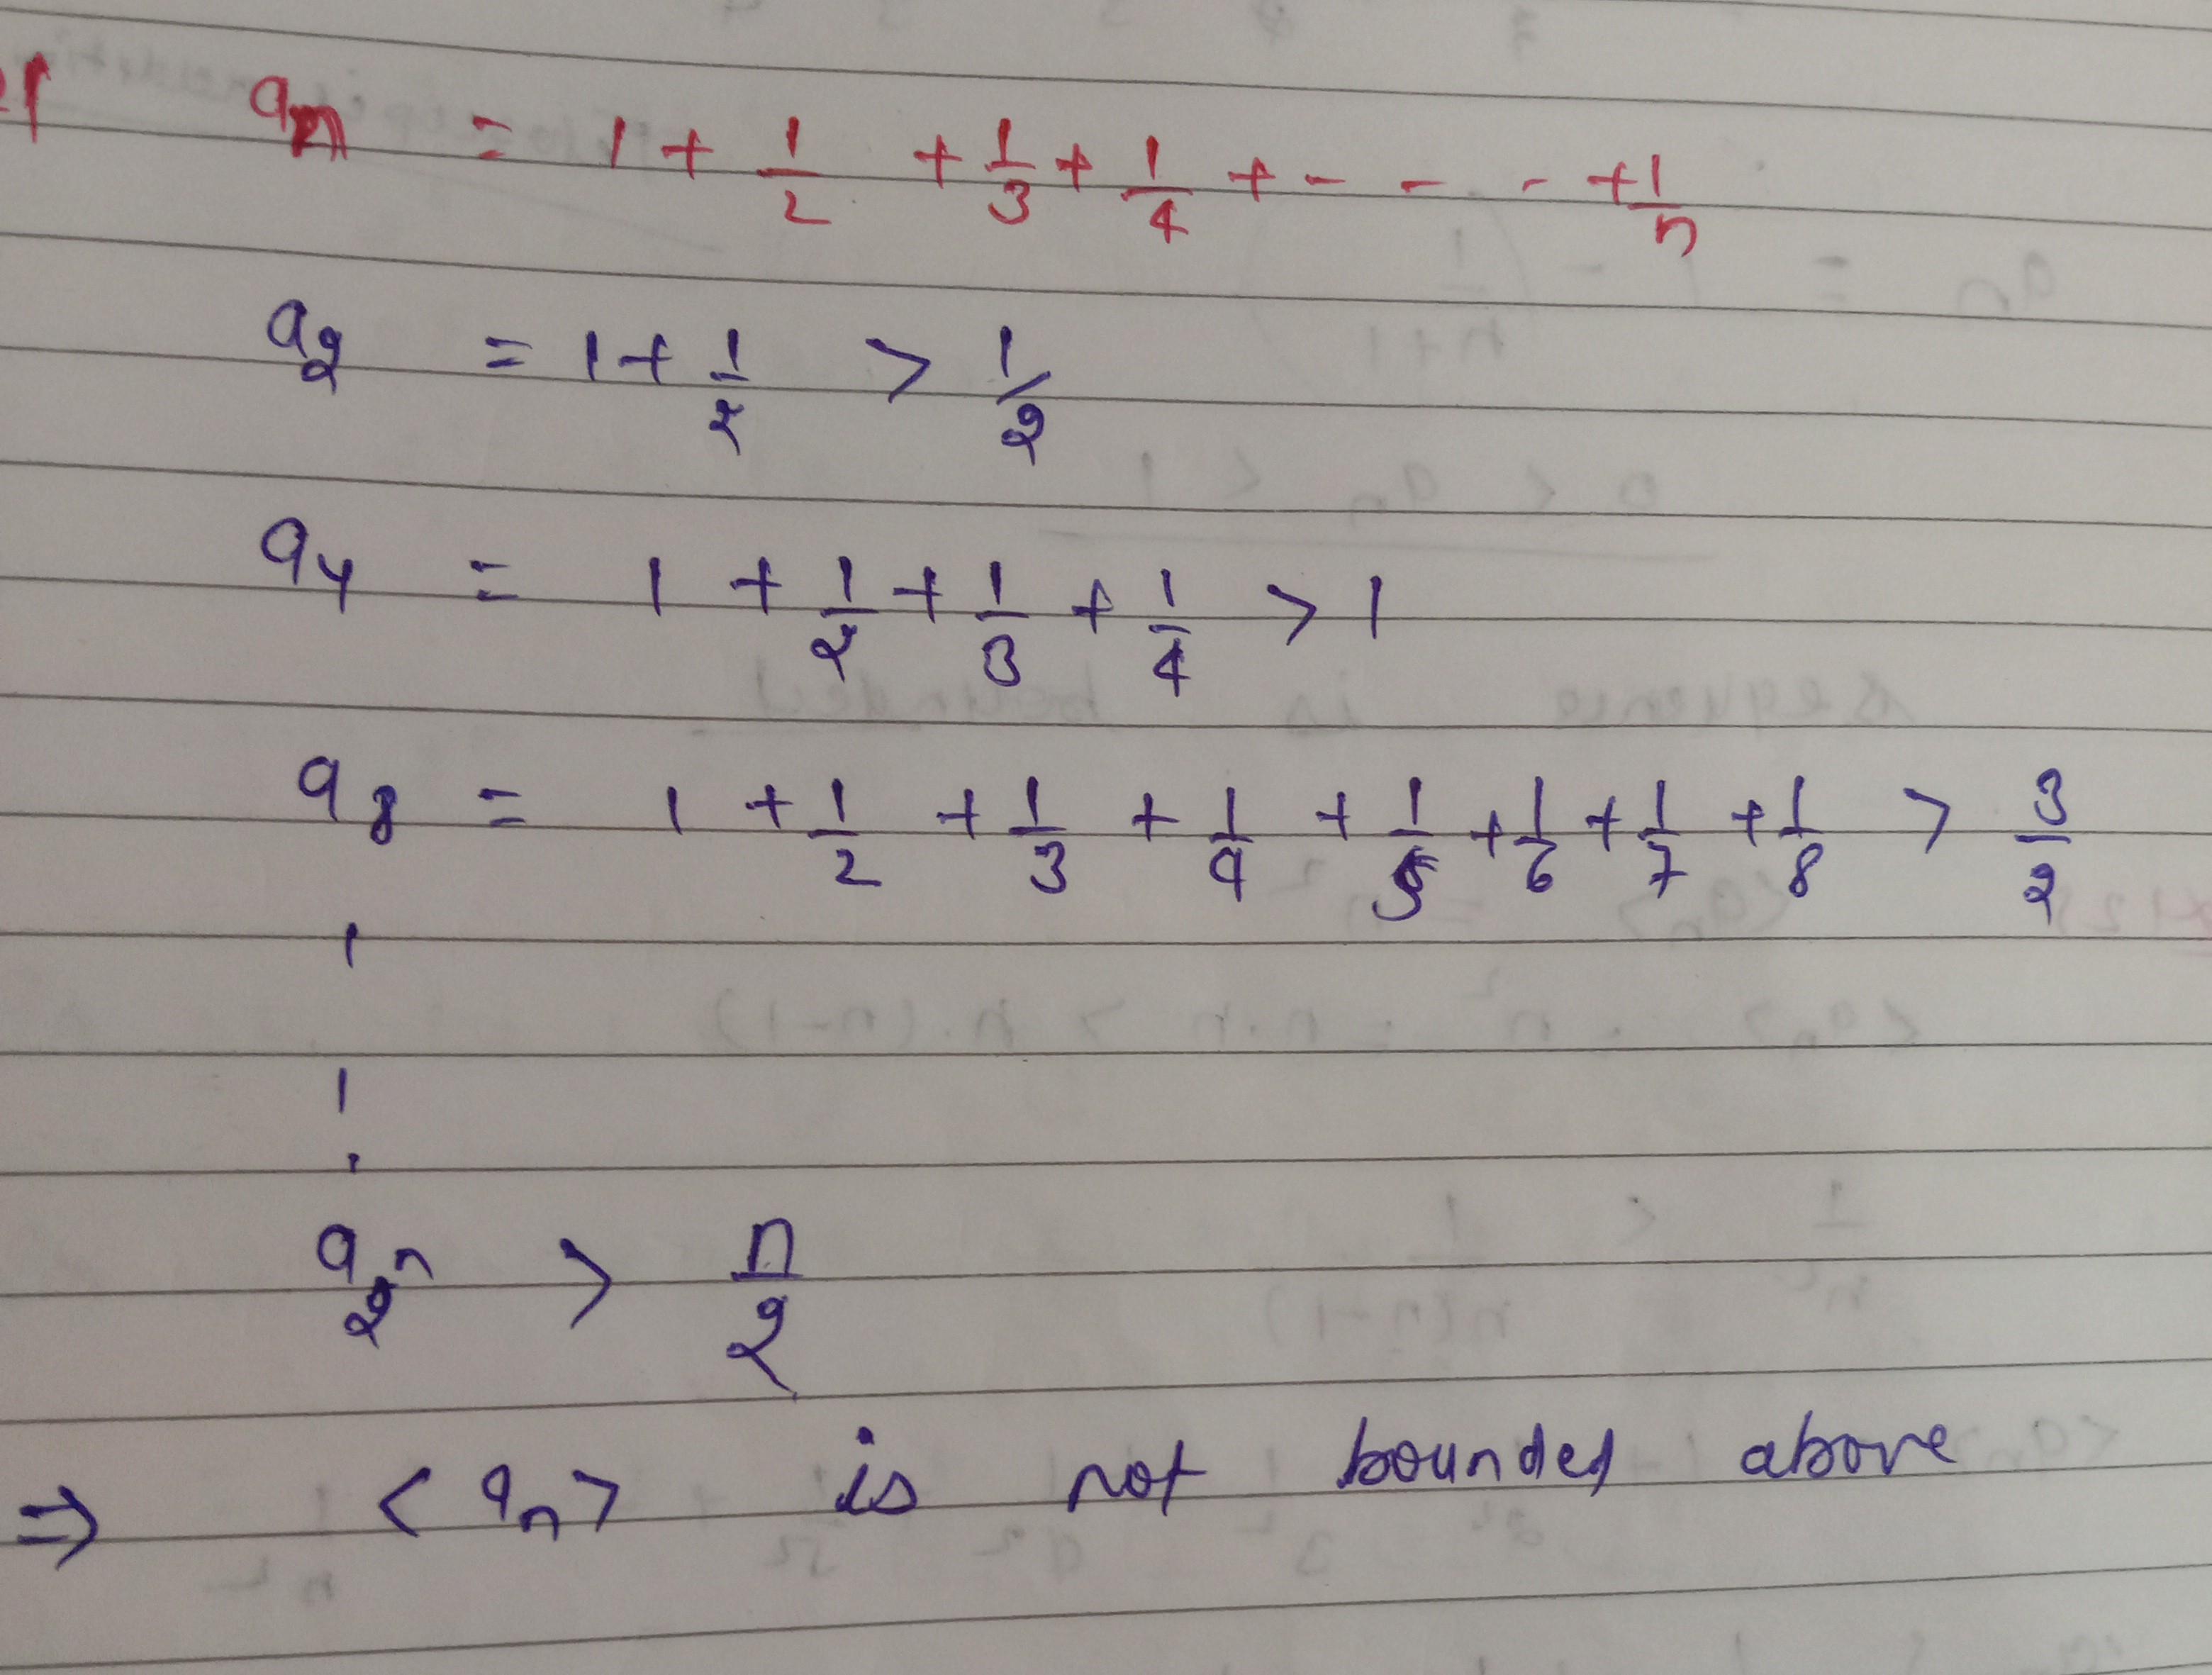 aₙ = 1 + 1/2 + 1/3 + 1/4 + - - - + 1/n
a₂ = 1 + 1/2 > 1/2
a₄ = 1 + 1/2 + 1/3 + 1/4 > 1
a₈ = 1 + 1/2 + 1/3 + 1/4 + 1/5 + 1/6 + 1/7 + 1/8 > 3/2
a_{2ⁿ} > n/2
⇒ < aₙ > is not bounded above